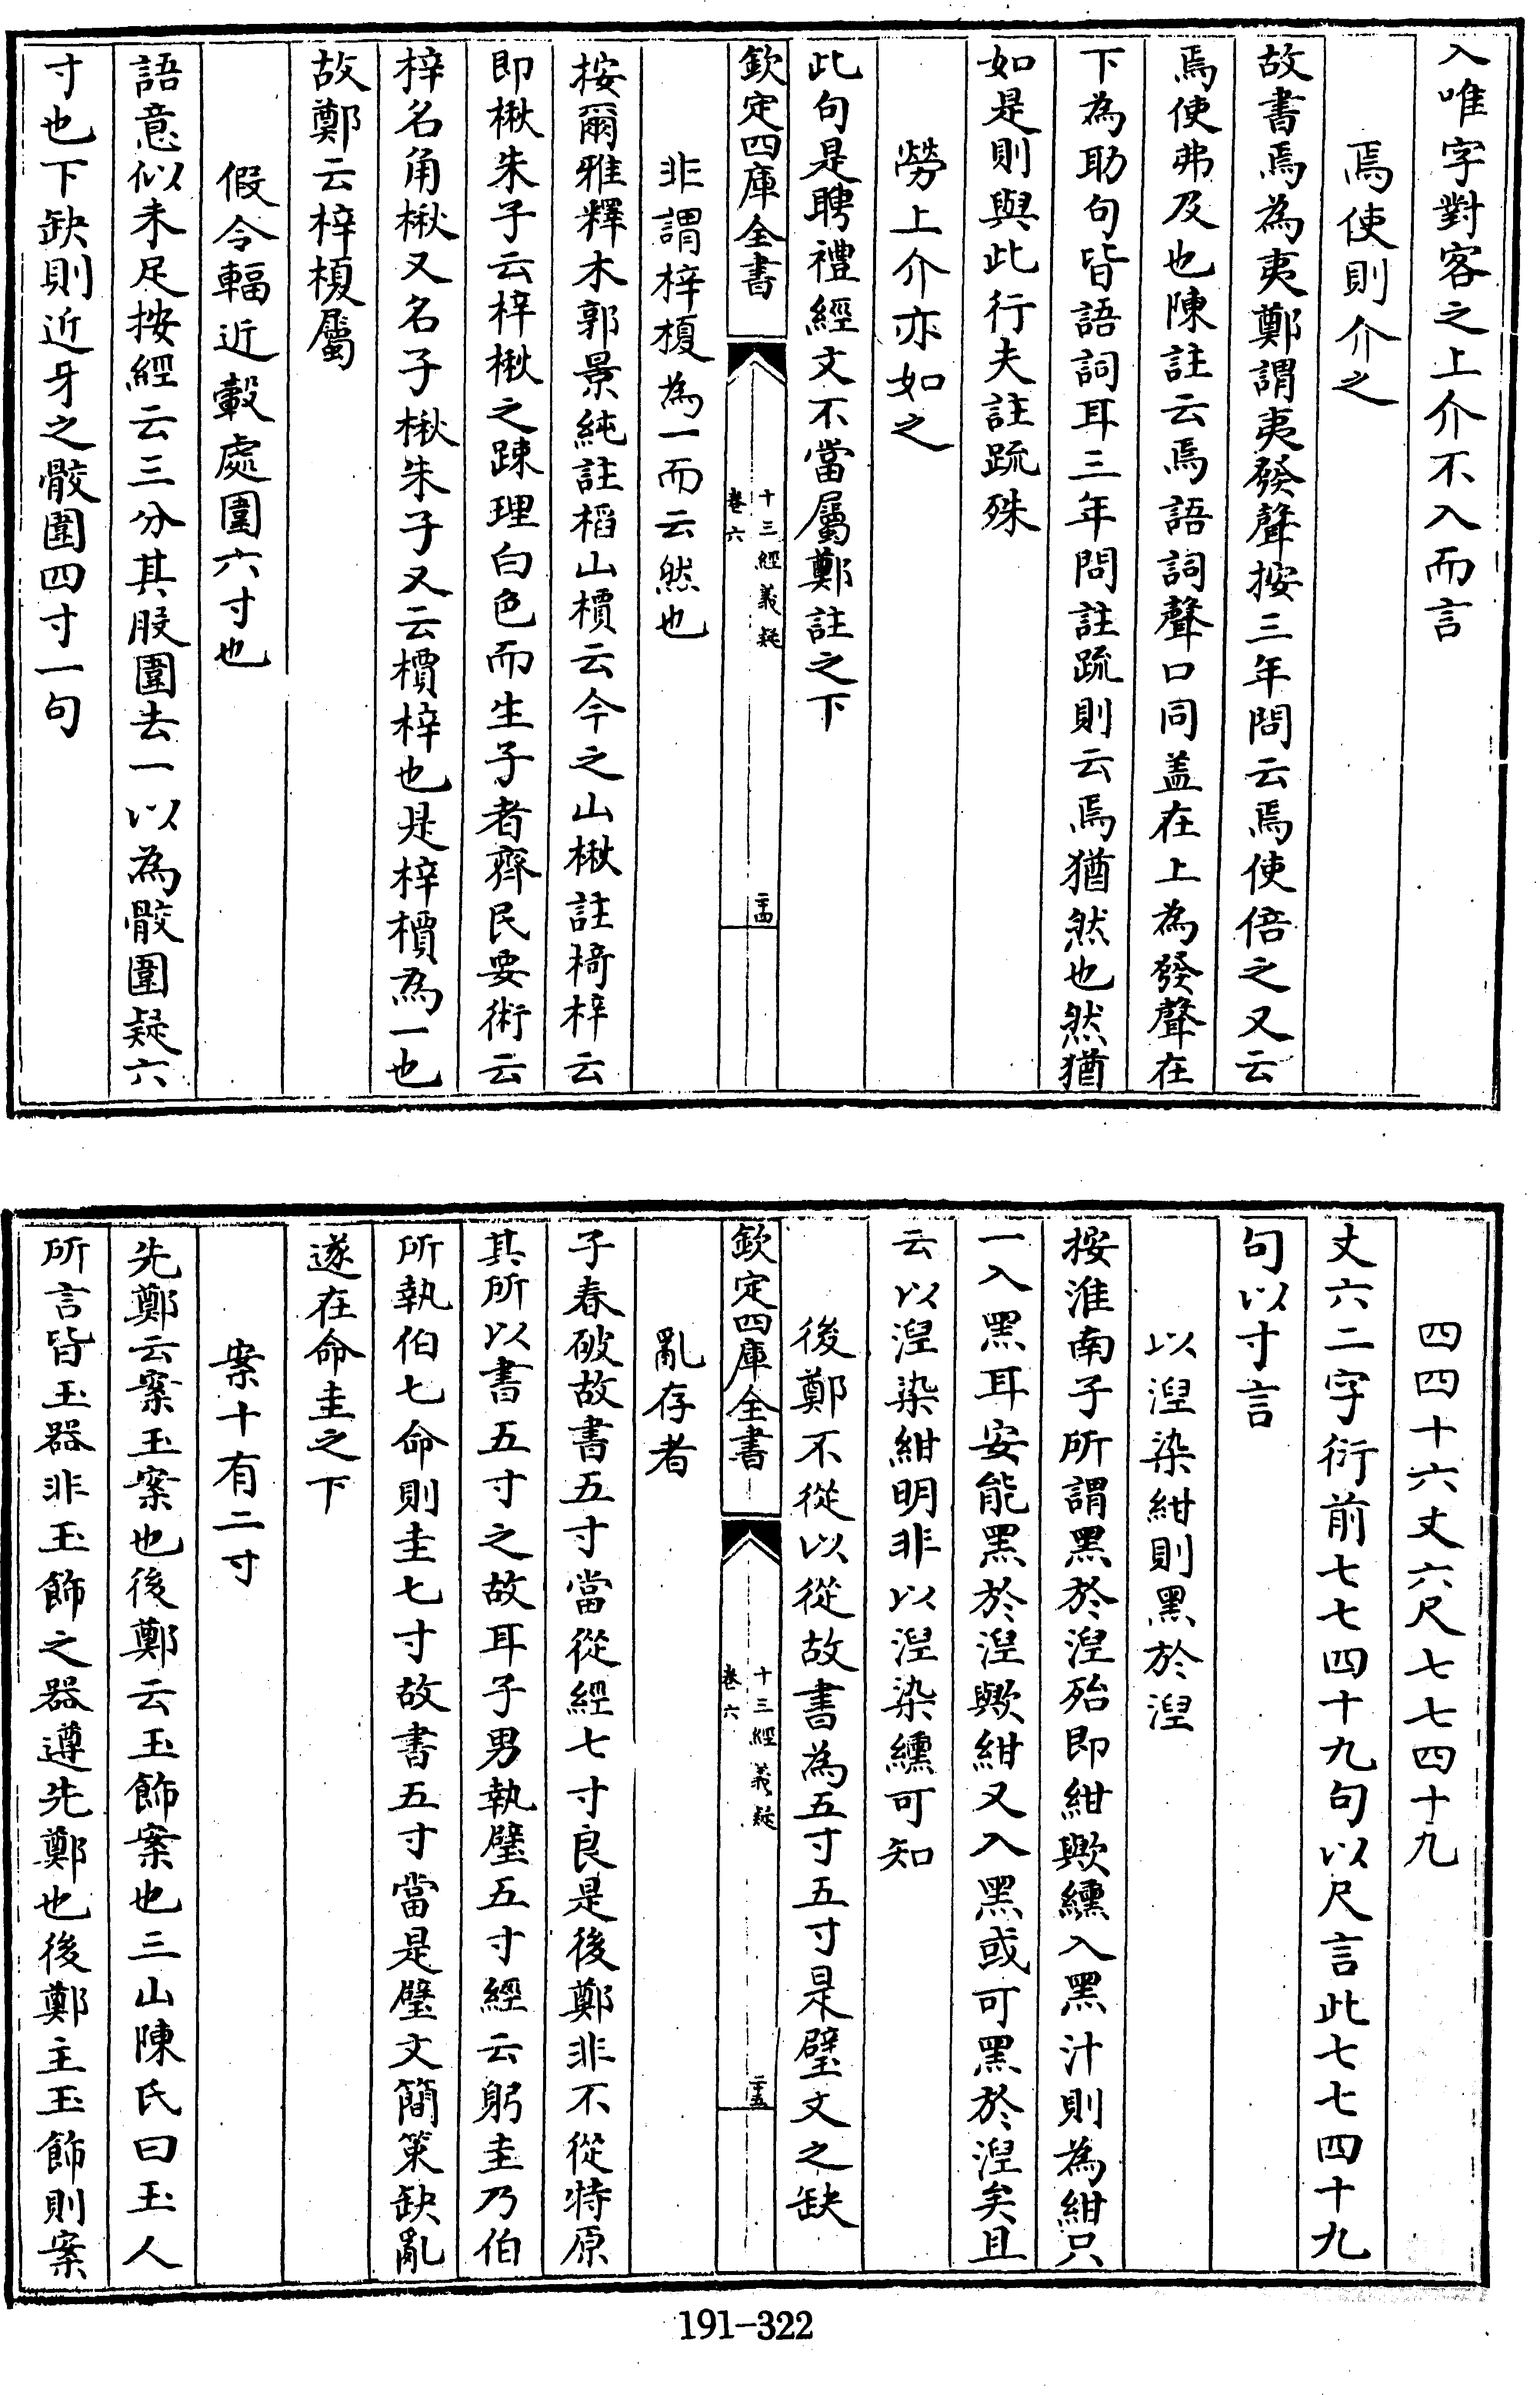 入唯字對客之上介不入而言
焉使則介之
故書焉為夷鄭謂夷發聲按三年問云焉使倍之又云
焉使弗及也陳註云焉語詞聲口同盖在上為發聲在
下為助句皆語詞耳三年問註疏則云焉猶然也然猶
如是則與此行夫註疏殊
勞上介亦如之
此句是聘禮經文不當屬鄭註之下
欽定四庫全書
十三經義疑
卷六
二十四
非謂梓榎為一而云然也
按爾雅釋木郭景純註槄山檟云今之山楸註椅梓云
即楸朱子云梓楸之踈理白色而生子者齊民要術云
梓名角楸又名子楸朱子又云檟梓也是梓檟為一也
故鄭云梓榎屬
假令輻近轂處圍六寸也
語意似未足按經云三分其股圍去一以為骹圍疑六
寸也下缺則近牙之骹圍四寸一句
四四十六丈六尺七七四十九
丈六二字衍前七七四十九句以尺言此七七四十九
句以寸言
以湼染紺則黑於湼
按淮南子所謂黑於湼殆即紺歟纁入黑汁則為紺只
一入黑耳安能黑於湼歟紺又入黑或可黑於湼矣且
云以湼染紺明非以湼染纁可知
後鄭不從以從故書為五寸五寸是璧文之缺
欽定四庫全書
十三經義疑
卷六
二十五
亂存者
子春破故書五寸當從經七寸良是後鄭非不從特原
其所以書五寸之故耳子男執璧五寸經云躬圭乃伯
所執伯七命則圭七寸故書五寸當是璧文簡策缺亂
遂在命圭之下
案十有二寸
先鄭云案玉案也後鄭云玉飾案也三山陳氏曰玉人
所言皆玉器非玉飾之器遵先鄭也後鄭主玉飾則案
191-322